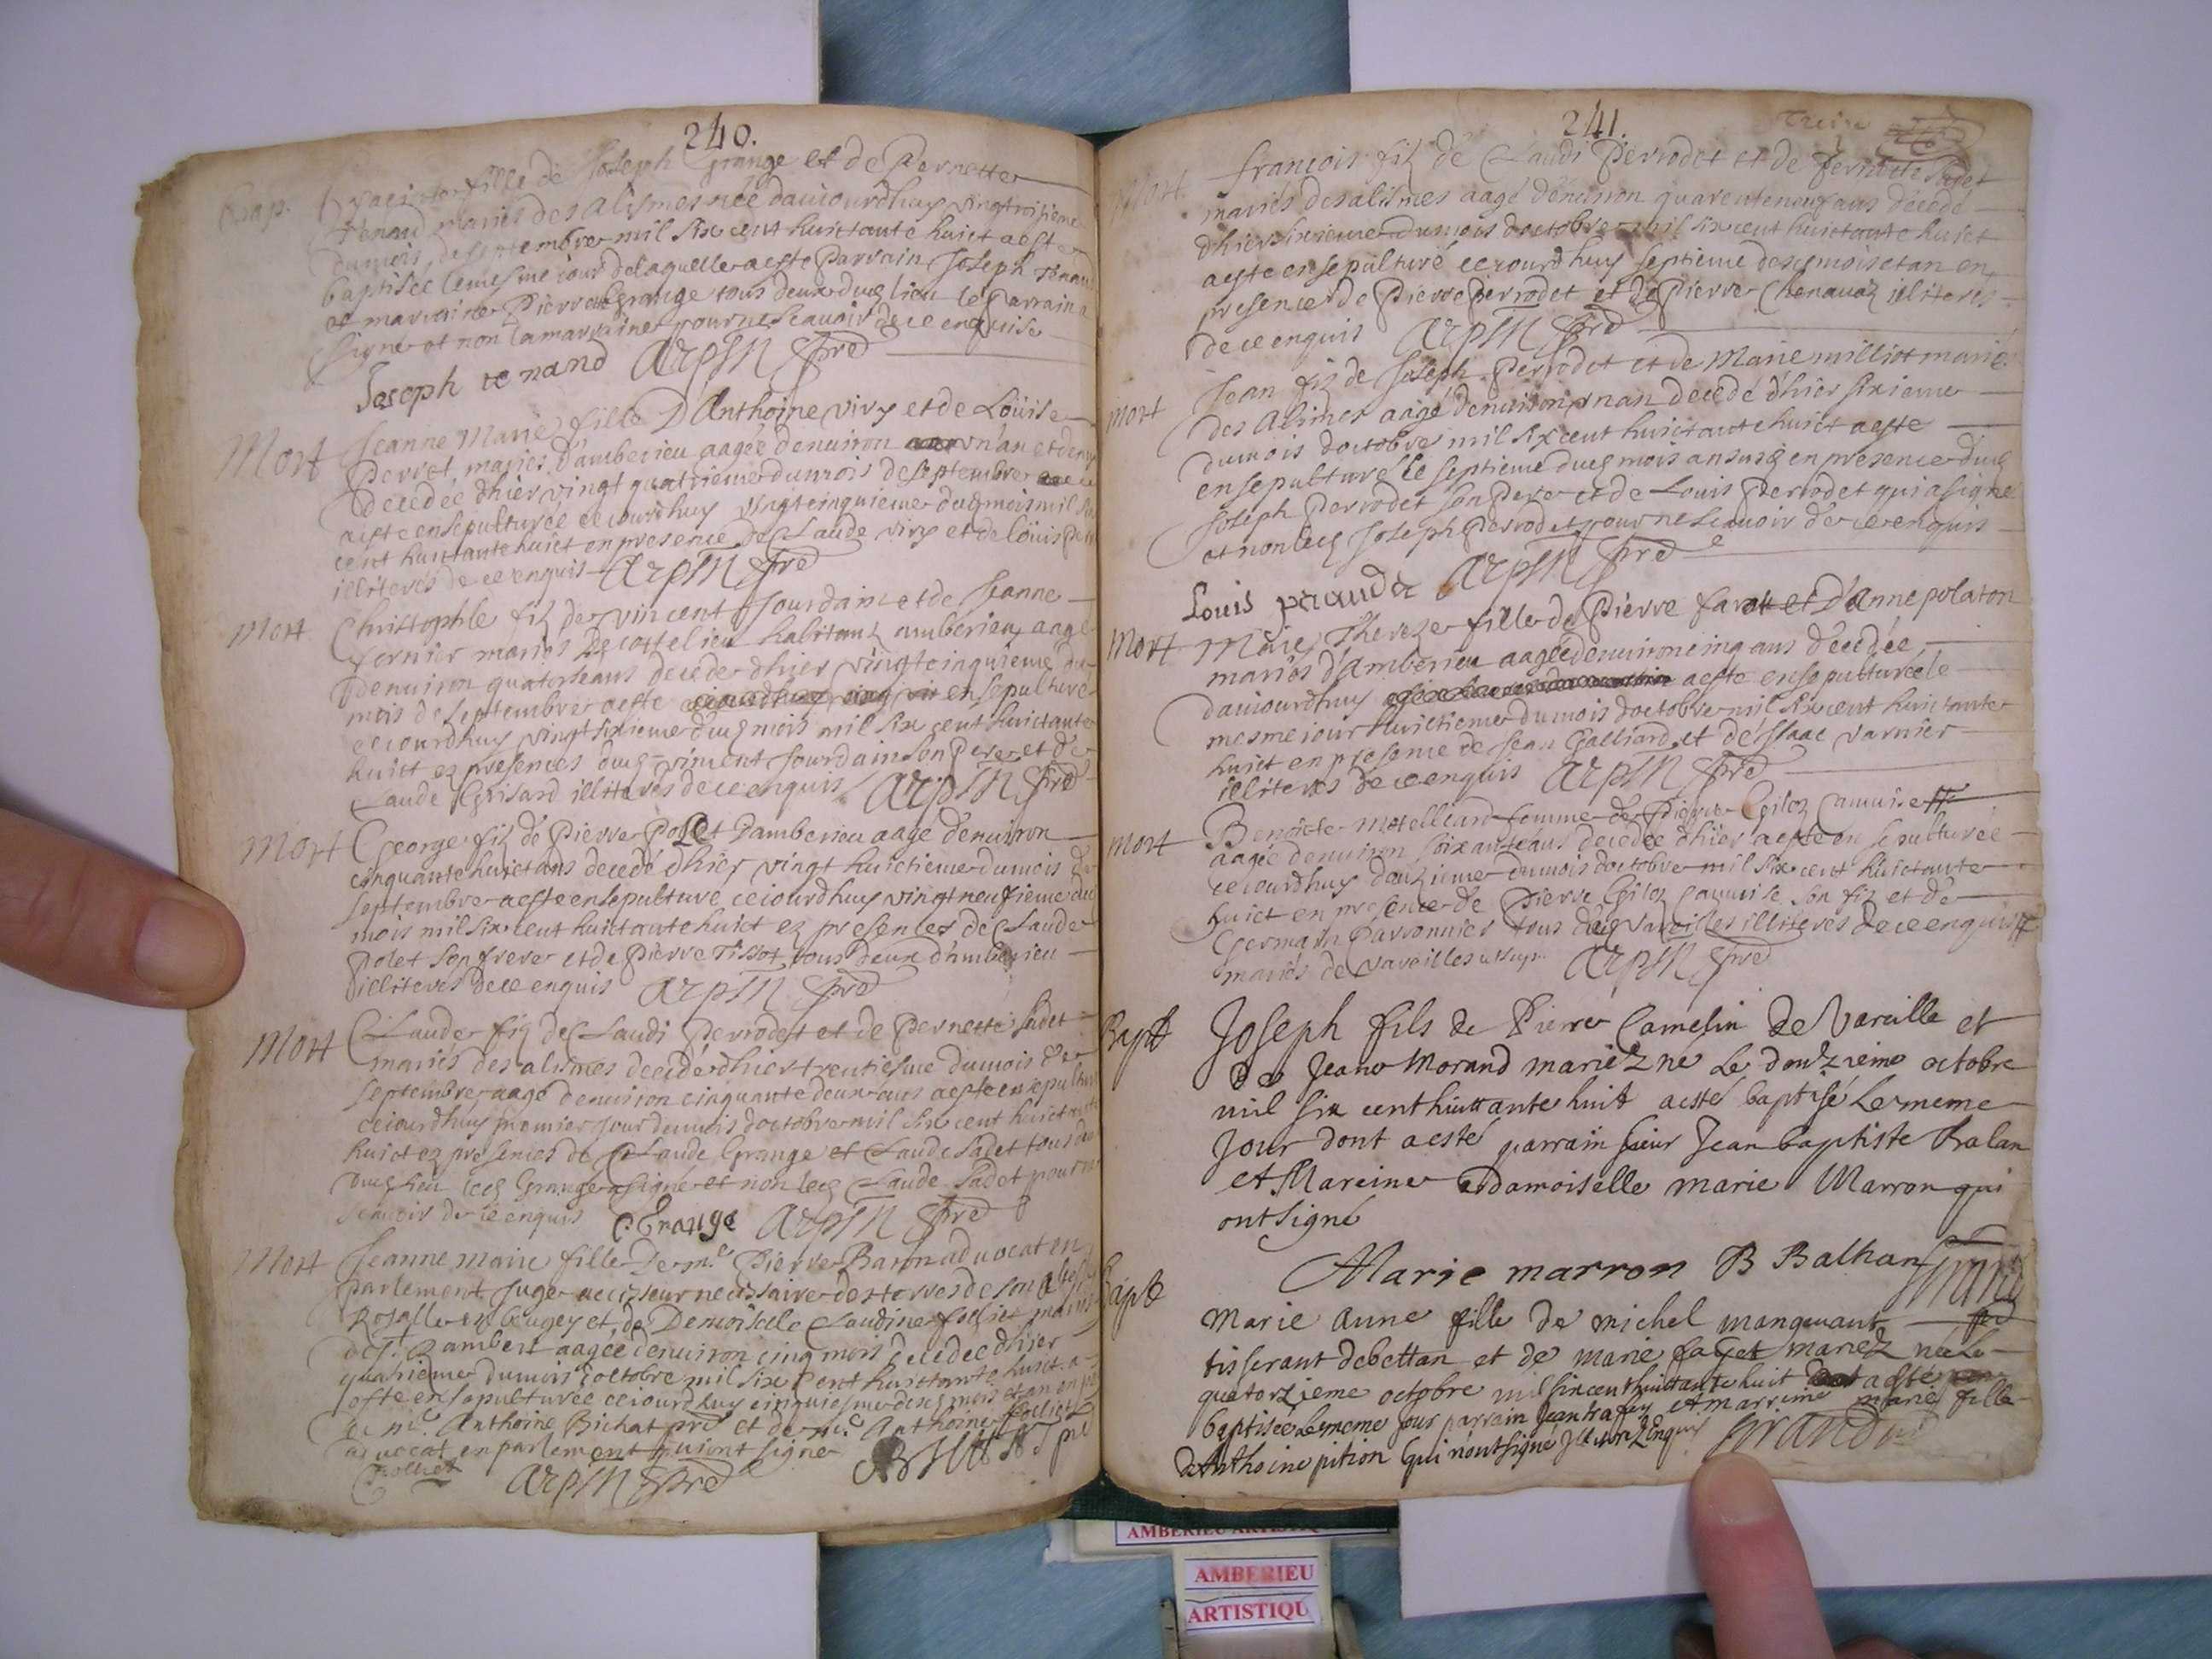 240.
Bap. fille de Joseph Grange et de Pernette
Tenand mariés des alismes née daujourdhuy vingtroisieme
du mois de septembre mil six cent huictante huict a este
baptisée le mesme jour de laquelle a este Parrain Joseph Tenand
et marraine Pierre Grange tous deux dud lieu le Parrain a
signé et non la marraine pour ne scavoir de ce enquise
Joseph tenand ARPIN pre
Mort Jeanne Marie fille D'Anthoine vivy et de Loüise
Perret mariés d'amberieu aagée denuiron un an et demy
decedée dhier vingt quatrieme du mois de septembre
a este ensepulturée cejourdhuy vingtcinquieme dud mois mil six
cent huictante huict en presence de Claude vivy et de loüis
illiterés de ce enquis ARPIN pre
Mort Christophle fiz de vincent Jourdain et de Jeanne
fornier mariés de costelieu habitant amberieu aagé
denuiron quatorse ans decede dhier vingtcinquieme du
mois de septembre a este ensepulturé
cejourdhuy vingt sixieme dud mois mil six cent huictante
huict ez presences dud vincent Jourdain son Pere et de
Claude Grisard illiterés de ce enquis ARPIN pre
Mort George fiz de Pierre Polet d'amberieu aagé denuiron
cinquante huict ans decedé dhier vingt huictieme du mois de
septembre a este ensepulturé cejourdhuy vingt neufieme dud
mois mil six cent huictante huict ez presences de Claude
Polet son frere et de Pierre Tissot tous deux d'amberieu
illiterés de ce enquis ARPIN pre
Mort Claude fiz de Claudi Perrodet et de Pernette Sadet
mariés des alismes decedé dhier trentiesme du mois de
septembre aagé denuiron cinquante deux ans a este ensepulturé
cejourdhuy premier jour du mois doctobre mil six cent huictante
huict ez presences de Claude Grange et Claude Sadet tous
dud lieu led Grange a signé et non led Claude Sadet pour ne
scavoir de ce enquis C. Grange ARPIN pre
Mort Jeanne Marie fille de me Pierre Baron advocat en
parlement Juge
en Bugey et de Demoiselle Claudine folliet mariés
de St Rambert aagée denuiron cinq mois decedee dhier
quatrieme du mois doctobre mil six cent huictante huict a
este ensepulturée cejourdhuy cinquiesme desd mois et an en
de me Anthoine Bichat pre et de me Anthoine folliet
advocat en parlement qui ont signé
folliet ARPIN pre
241.
Treize
Mort francois fiz de Claudi Perrodet et de Pernette Sadet
mariés des alismes aagé denuiron quarente neuf ans decede
dhier sixieme du mois doctobre mil six cent huictante huict
a este ensepulturé cejourdhuy septieme desd mois et an en
presence de Pierre Perrodet et de Pierre Chenavaz illiteres
de ce enquis ARPIN pre
mort Jean fiz de Joseph Perrodet et de Marie milliot mariés
des Alimes aagé denuiron un an decedé dhier sixieme
du mois doctobre mil six cent huictante huict a este
ensepulturé le septieme dud mois an susd en presence dud
Joseph Perrodet son Pere et de Louis Perrodet qui a signé
et non led Joseph Perrodet pour ne scavoir de ce enquis
Louis ARPIN pre
Mort Marie Thereze fille de Pierre farott et d'Anne polaton
mariés d'Amberieu aagée denuiron cinq ans decedée
daujourdhuy a este ensepulturée le
mesme jour huictieme du mois doctobre mil six cent huictante
huict en presence de Jean Galliard et de Isaac varnier
illiterés de ce enquis ARPIN pre
mort Benoicte Motelliard femme de Pierre Gilez Camuise
aagée denuiron soixante ans decedée dhier a este ensepulturée
cejourdhuy douzieme du mois doctobre mil six cent huictante
huict en presence de Pierre Gilez Camuise son fiz et de
Germain Carronnier tous deux varoilles illiterés de ce enquis
mariés de varoilles ARPIN pre
Bapt Joseph fils de Pierre Camesin de Vareille et
De Jeane Morand mariez né le douzieme octobre
mil six cent huittante huit a esté baptisé le meme
Jour dont a esté parrain sieur Jean baptiste Balan
et Mareine damoiselle marie Marron qui
ont signé
Marie marron B Balhan
Bapt Marie Anne fille de michel manquant
tisserant debettan et de marie fayet mariez née le
quatorzieme octobre mil six cent huittante huit a esté
baptisée le meme jour parrain Jean trafey et marreine marie fille
de Anthoine pition qui n'ont signé Illiterez Enquis
AMBERIEU
AMBERIEU
ARTISTIQU